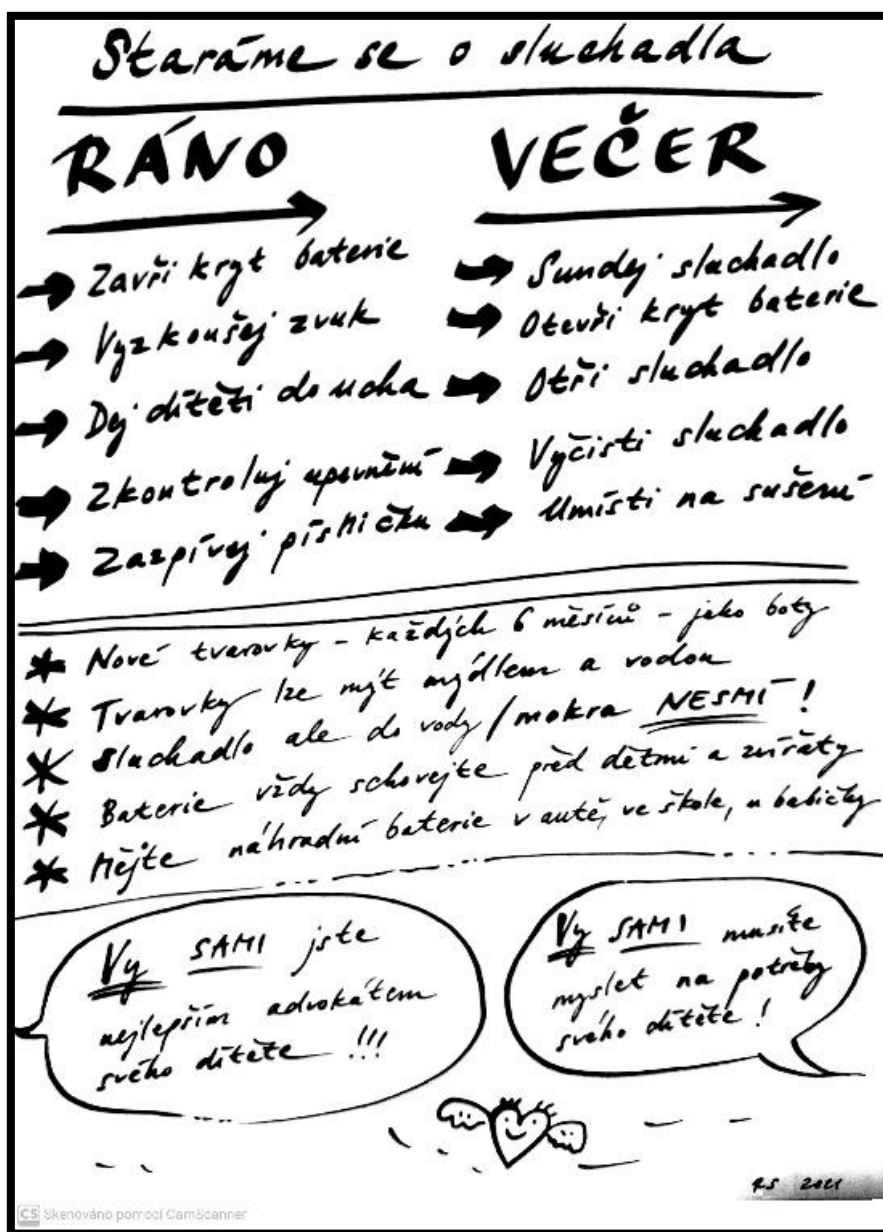 Staráme se o sluchadla
RÁNO
Zavři kryt baterie
Vyzkoušej zvuk
Dej dítěti do ucha
Zkontroluj upevnění
Zazpívej písničku
VEČER
Sundej sluchadlo
Otevři kryt baterie
Otři sluchadlo
Vyčisti sluchadlo
Umísti na sušení
Nové tvarovky – každých 6 měsíců – jako boty
Tvarovky lze mýt mýdlem a vodou
Sluchadlo ale do vody/mokra NESMÍ!
Baterie vždy schovejte před dětmi a zvířaty
Mějte náhradní baterie v autě, ve škole, u babičky
Vy SAMI jste
nejlepším advokátem
svého dítěte !!!
Vy SAMI musíte
myslet na potřeby
svého dítěte!
RS 2021
CS Skenováno pomocí CamScanner